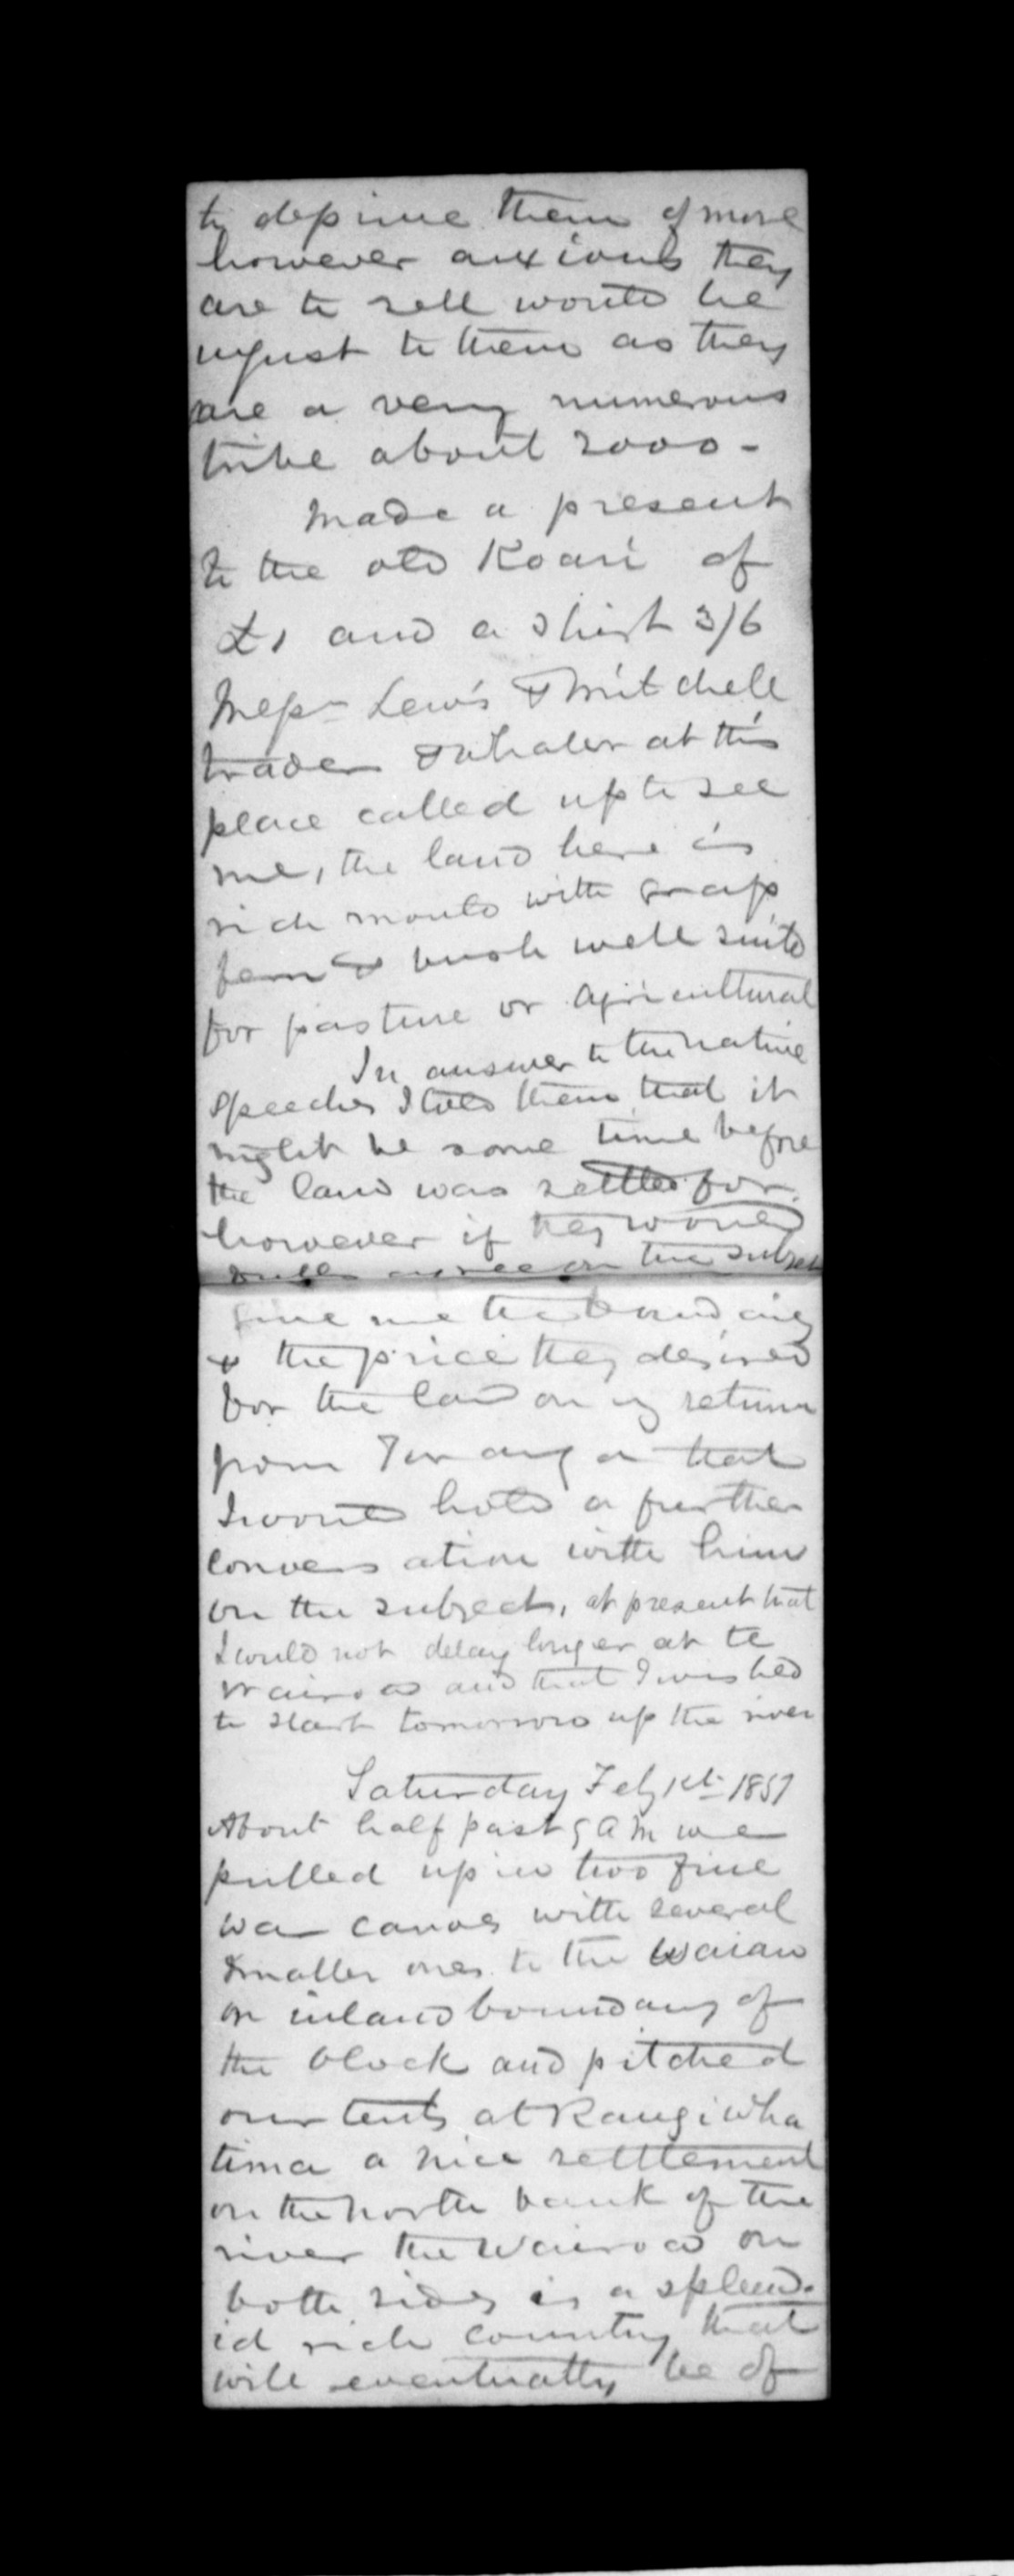 to deprive them of more
however anxious they
are to sell would be
unjust to them as they
are a very numerous
tribe about 2000 -
Made a present
to the old Koari of
£1 and a shirt 3/6
Messrs Lewis & Mitchell
trader & whaler at this
place called up to see
me, the land here is
rich mould with grass
fern & bush well suited
for pasture or agricultural
In answer to the native
speeches I told them that it
might be some time before
the land was settled for
however if they would
agree on the subject
give me the boundaries
& the price they desired
for the land on my return
from Turanga that
I would hold a further
conversation with him
on the subject, at present that
I could not delay longer at te
Wairoa and that I wished
to start tomorrow up the river
Saturday Feby 1st 1851
About half past 5 AM we
pulled up in two fine
war canoes with several
smaller ones to the Waiau
or inland boundary of
the block and pitched
our tents at Rangiwha
tima a nice settlement
on the north bank of the
river the Wairoa on
both sides is a splend-
id rich country that
will eventually be of